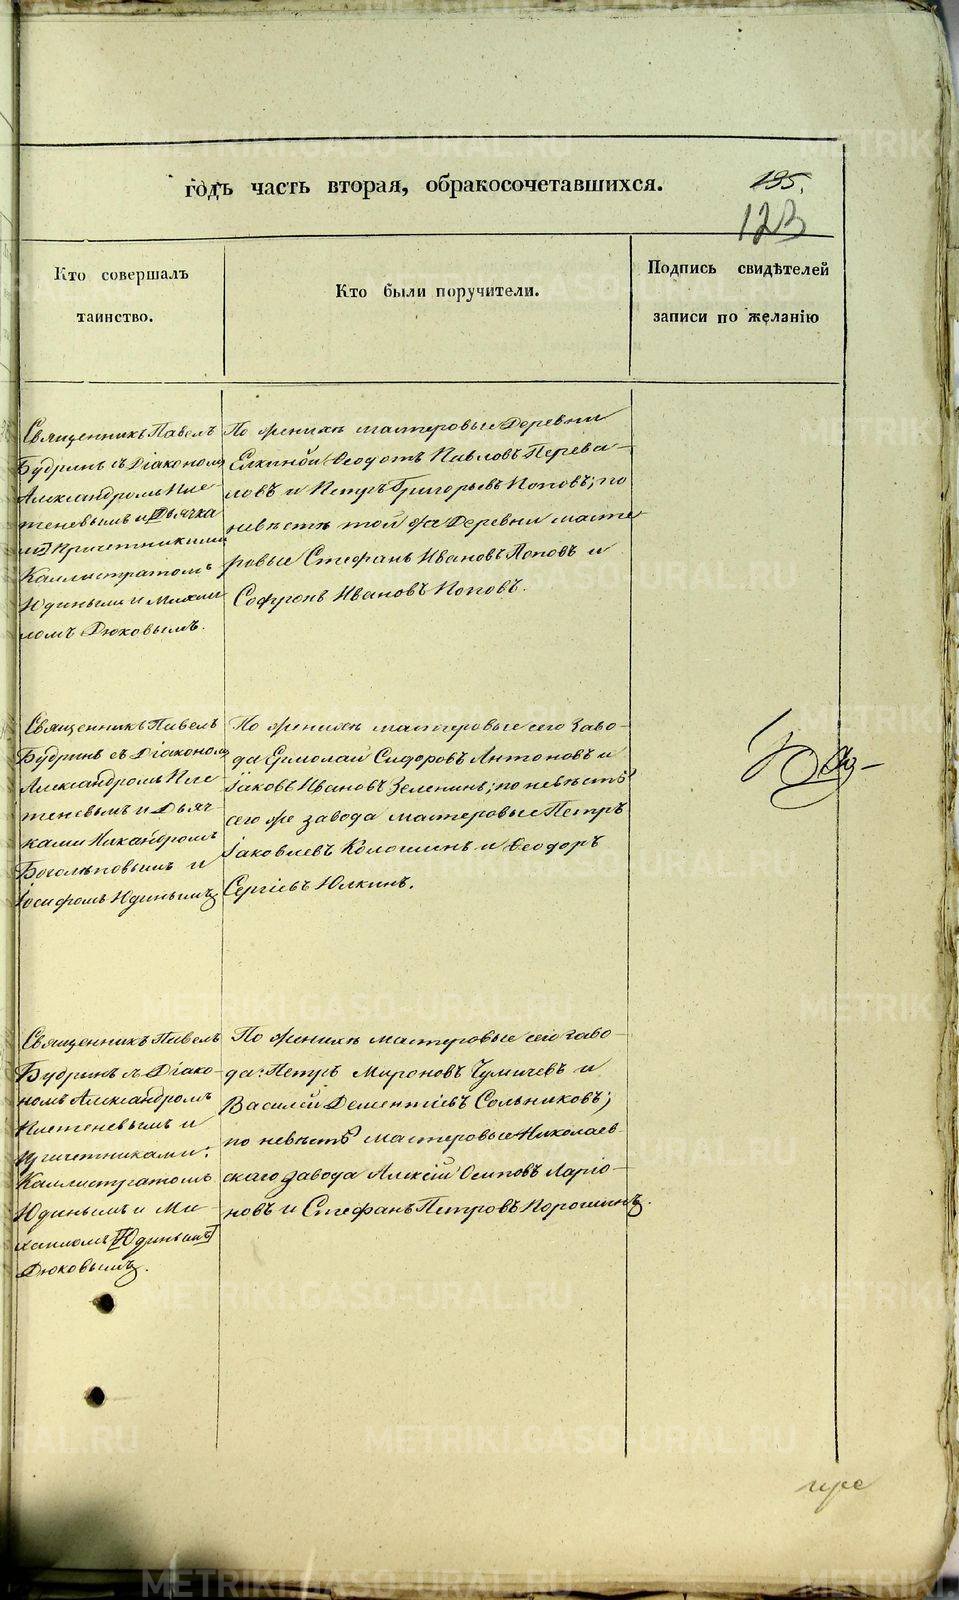 годъ часть вторая, обракосочетавшихся.
195.
123
Кто совершалъ
таинство.
Кто были поручители.
Подпись свидѣтелей
записи по желанію
Священникъ Павелъ
Будринъ съ Діакономъ
Александромъ Пле-
теневымъ и Дьячка
ми Причетниками
Каллистратомъ
Юдинымъ и Михаи
ломъ Дюковымъ.
По женихѣ мастеровые Деревни
Елкиной Ѳеодотъ Павловъ Перева-
ловъ и Петръ Григорьевъ Поповъ; по
невѣстѣ той же Деревни масте
ровые Стефанъ Ивановъ Поповъ и
Софронъ Ивановъ Поповъ.
Священникъ Павелъ
Будринъ съ Діакономъ
Александромъ Пле
теневымъ и Дьяч-
ками Никандромъ
Боголѣповымъ и
Іосифомъ Юдинымъ
По женихѣ мастеровые сего Заво-
да Ермолай Сидоровъ Антоновъ и
Іаковъ Ивановъ Зеленинъ; по невѣстѣ
сего же завода мастеровые Петръ
Іаковлевъ Колошинъ и Ѳеодоръ
Сергіевъ Юлкинъ.
Священникъ Павелъ
Будринъ съ Діако-
номъ Александромъ
Плетеневымъ и
причетниками:
Каллистратомъ
Юдинымъ и Ми-
хаиломъ Юдинымъ
Дюковымъ.
По женихѣ мастеровые сего заво-
да: Петръ Мироновъ Чумичевъ и
Василій Дементіевъ Сольниковъ;
по невѣстѣ мастеровые Николаев-
скаго завода Алексій Осиповъ Ларіо-
новъ и Стефанъ Петровъ Порошинъ.
METRIKI.GASO-URAL.RU